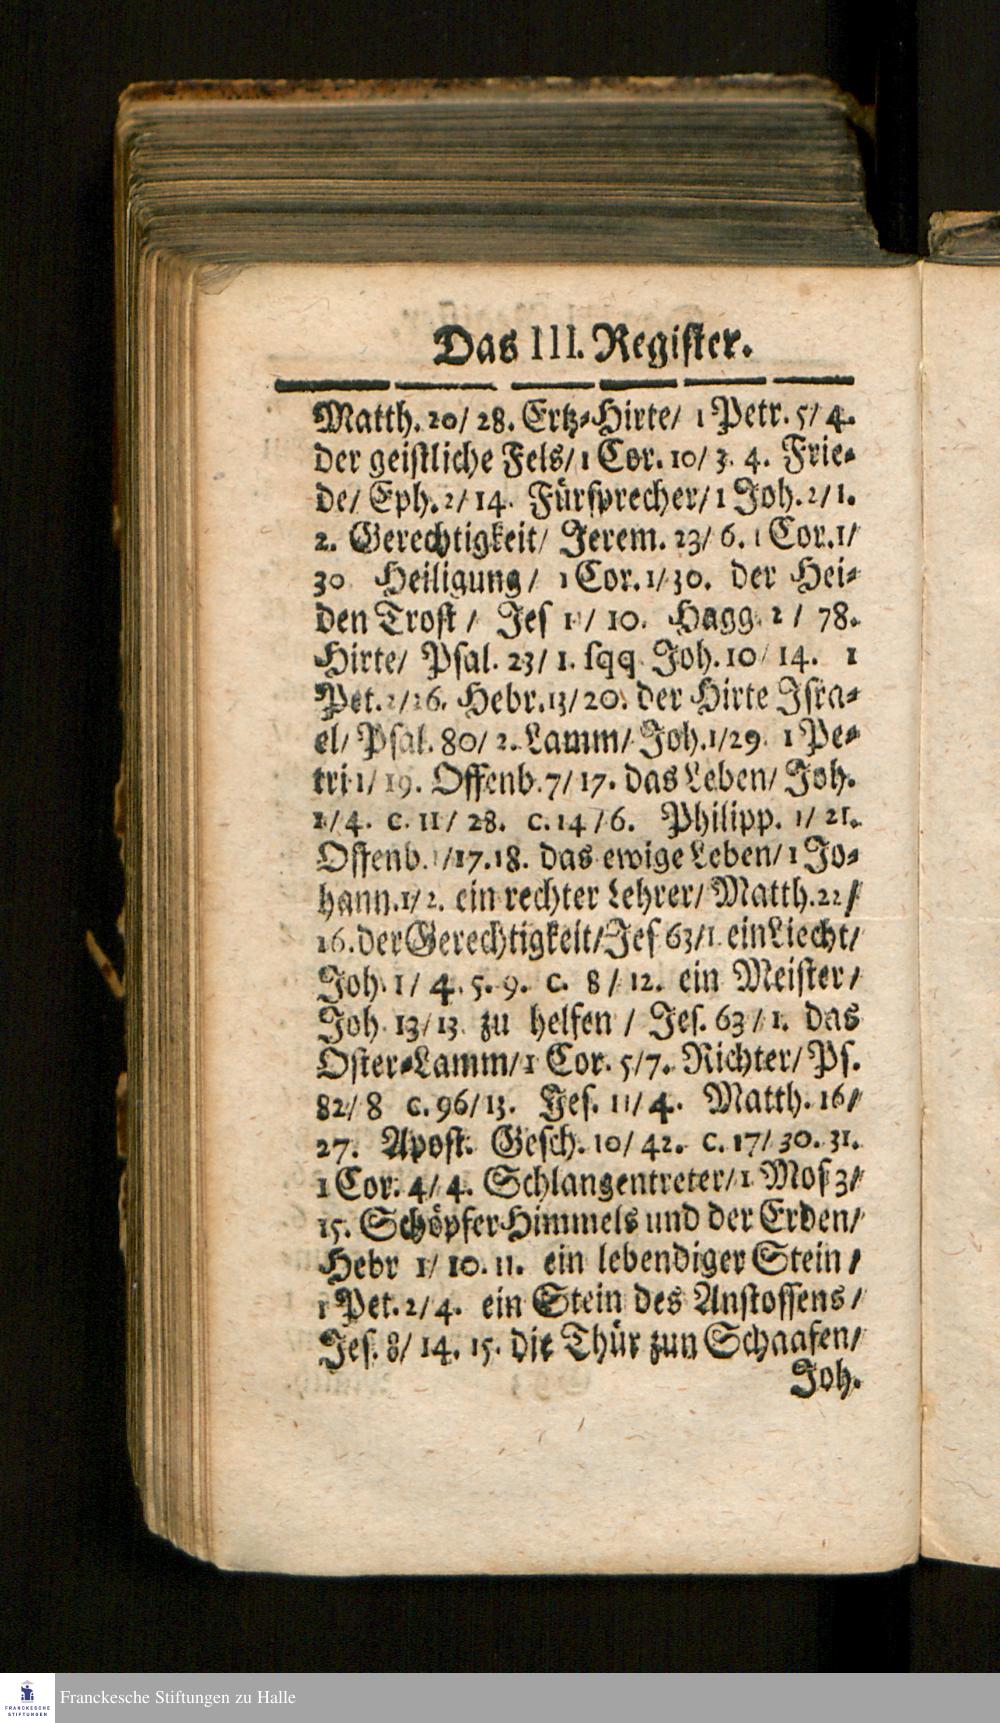 Das III. Register.
Matth. 20/ 28. Ertz-Hirte/ 1 Petr. 5/ 4.
der geistliche Fels/ 1 Cor. 10/ 3. 4. Frie-
de/ Eph. 2/ 14. Fürsprecher/ 1 Joh. 2/ 1.
2. Gerechtigkeit/ Jerem. 23/ 6. 1 Cor. 1/
30 Heiligung/ 1 Cor. 1/ 30. der Hei-
den Trost/ Jes 11/ 10. Hagg. 2/ 78.
Hirte/ Psal. 23/ 1. sqq. Joh. 10/ 14. 1
Pet. 2/26. Hebr. 13/ 20. der Hirte Isra-
el/ Psal. 80/ 2. Lamm/ Joh. 1/29. 1 Pe-
tri 1/ 19. Offenb. 7/ 17. das Leben/ Joh.
1/ 4. c. 11/ 28. c. 14/6. Philipp. 1/ 21.
Offenb. 1/17.18. das ewige Leben/ 1 Jo-
hann. 1/ 2. ein rechter Lehrer/ Matth. 22/
16. der Gerechtigkeit/ Jes 63/1. ein Liecht/
Joh. 1/ 4. 5. 9. c. 8/ 12. ein Meister/
Joh 13/ 13. zu helfen/ Jes. 63/ 1. das
Oster-Lamm/ 1 Cor. 5/7. Richter/ Ps.
82/ 8 c. 96/ 13. Jes. 11/ 4. Matth. 16/
27. Apost. Gesch. 10/ 42. c. 17/ 30. 31.
1 Cor. 4/ 4. Schlangentreter/ 1 Mos 3/
15. Schöpfer Himmels und der Erden/
Hebr 1/ 10. 11. ein lebendiger Stein/
1 Pet. 2/ 4. ein Stein des Anstossens/
Jes. 8/ 14. 15. die Thür zun Schaafen/
Joh.
FRANCKESCHE
STIFTUNGEN
Franckesche Stiftungen zu Halle